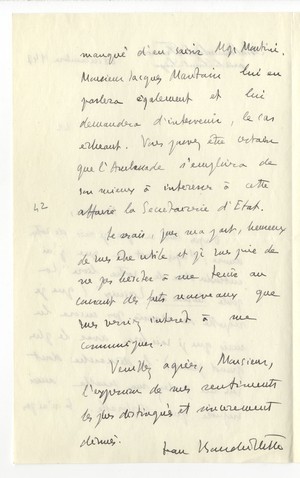 manqué d'en saisir Mgr Montini.
Monsieur Jacques Maritain lui en
parlera également et lui
demandera d'intervenir, le cas
échéant. Vous pouvez être certain
que l'Ambassade s'emploiera de
son mieux à intéresser à cette
42
affaire la Secrétairerie d'Etat.
Je serais, pour ma part, heureux
de vous être utile et je vous prie de
ne pas hésiter à me tenir au
courant des faits nouveaux que
vous verriez intérêt à me
communiquer.
Veuillez agréer, Monsieur,
l'expression de mes sentiments
les plus distingués et sincèrement
dévoués.
Jean